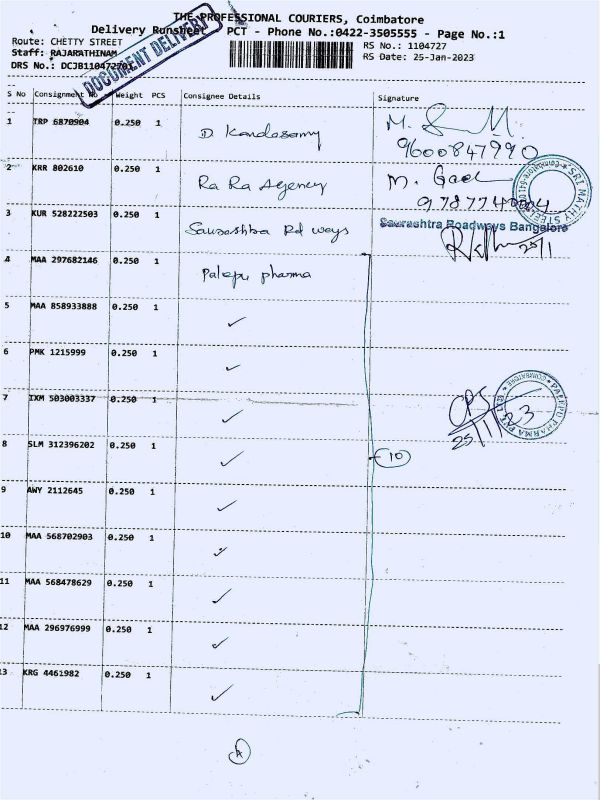 THE PROFESSIONAL COURIERS, Coimbatore
Delivery Runsheet PCT - Phone No.:0422-3505555 - Page No.:1
Route: CHETTY STREET
RS No.: 1104727
Staff: RAJARATHINAM
RS Date: 25-Jan-2023
DRS No.: DCJB110472701
DOCUMENT DELIVERY
S No Consignment No Weight PCS Consignee Details Signature
1 TRP 6870904 0.250 1 D. Kandasamy
9600847990
2 KRR 802610 0.250 1 Ra Ra Agency
9787740004
SRI MATHY STEEL
3 KUR 528222503 0.250 1 Saurashtra Rd ways
Saurashtra Roadways Bangalore
25/1
4 MAA 297682146 0.250 1 Palepu pharma
5 MAA 858933888 0.250 1 ✓
6 PMK 1215999 0.250 1 ✓
7 IXM 503003337 0.250 1 ✓
CPS
25/1/23
PALEPU PHARMA PVT LTD
COIMBATORE
8 SLM 312396202 0.250 1 ✓
10
9 AWY 2112645 0.250 1 ✓
10 MAA 568702903 0.250 1 ✓
11 MAA 568478629 0.250 1 ✓
12 MAA 296976999 0.250 1 ✓
13 KRG 4461982 0.250 1 ✓
A